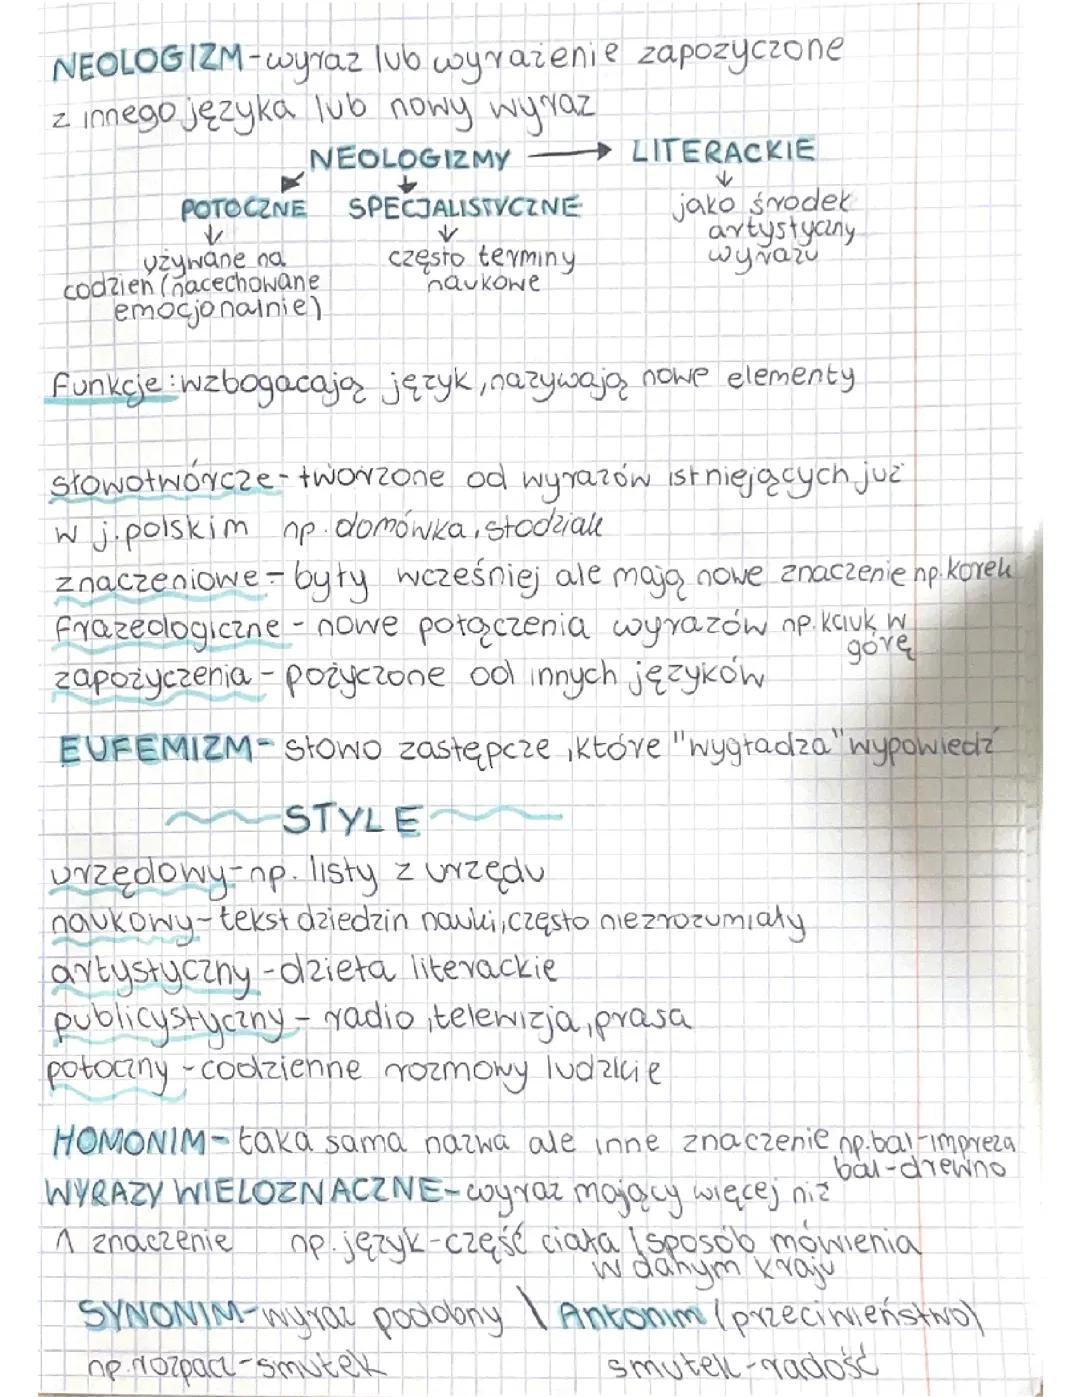 NEOLOGIZM-wyraz lub wyrażenie zapożyczone
z innego języka lub nowy wyraz
NEOLOGIZMY → LITERACKIE
POTOCZNE SPECJALISTYCZNE jako środek
artystyczny
używane na często terminy wyrazu
codzień (nacechowane naukowe
emocjonalnie)
funkcje: wzbogacają język, nazywają nowe elementy
słowotwórcze - tworzone od wyrazów istniejących już
w j. polskim np. domówka, słodziak
znaczeniowe - były wcześniej ale mają nowe znaczenie np. korek
frazeologiczne - nowe połączenia wyrazów np. kciuk w
górę
zapożyczenia - pożyczone od innych języków
EUFEMIZM- słowo zastępcze, które "wygładza" wypowiedź
STYLE
urzędowy-np. listy z urzędu
naukowy-tekst dziedzin nauki, często niezrozumiały
artystyczny -dzieła literackie
publicystyczny - radio, telewizja, prasa
potoczny - codzienne rozmowy ludzkie
HOMONIM- taka sama nazwa ale inne znaczenie np. bal-impreza
bal-drewno
WYRAZY WIELOZNACZNE- wyraz mający więcej niż
1 znaczenie np. język-część ciała \ sposób mówienia
w danym kraju
SYNONIM-wyraz podobny \ Antonim (przeciwieństwo)
np. rozpacz-smutek smutek-radość